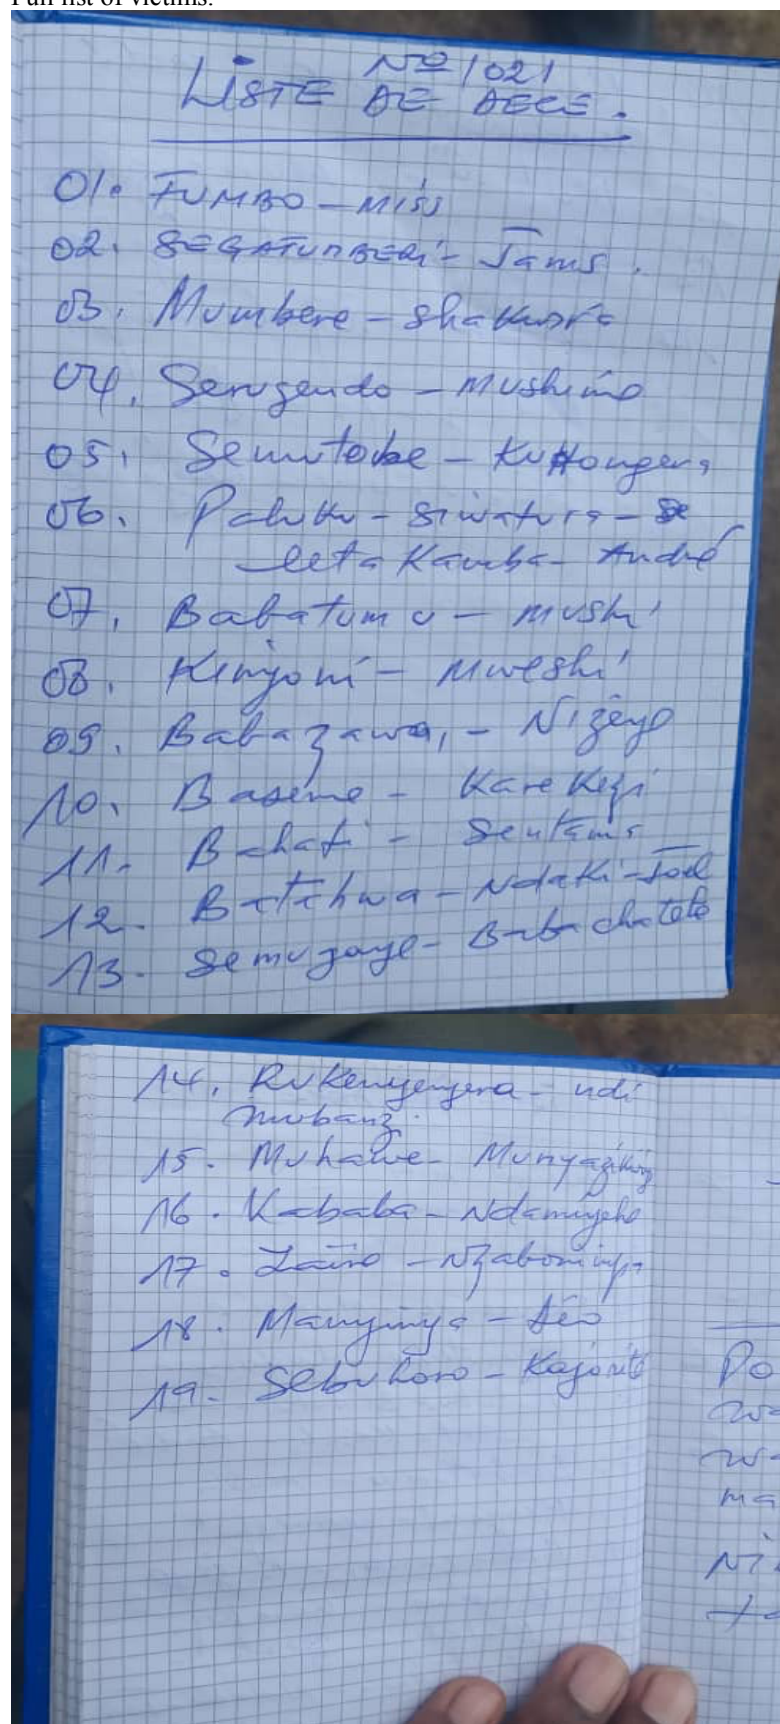 Full list of victims:
No 1021
LISTE DE DECE.
01. FUMBO - MISS
02. SEGATUMBERI - Jams.
03. Mumbere - Shakwora
04. Serugendo - Mushimo
05. Semutobe - Kuhongera
06. Paluku - Siwatura - Se
leta Kamba - André
07. Babatumu - Mushi
08. Kinyoni - Mweshi
09. Babazawa, - Nizeye
10. Baseme - Karekezi
11. Bahati - Sentama
12. Batachwa - Ndaki - Joel
13. Semugaye - Baba chatete
14. Rukenyengera - ndi
mubanzi
15. Muhawe - Munyaziking
16. Kababa - Ndamuyeho
17. Zairo - Nzabonimpa
18. Manyinya - Déo
19. Sebuhoro - Kajorite
Po
ma
Ni